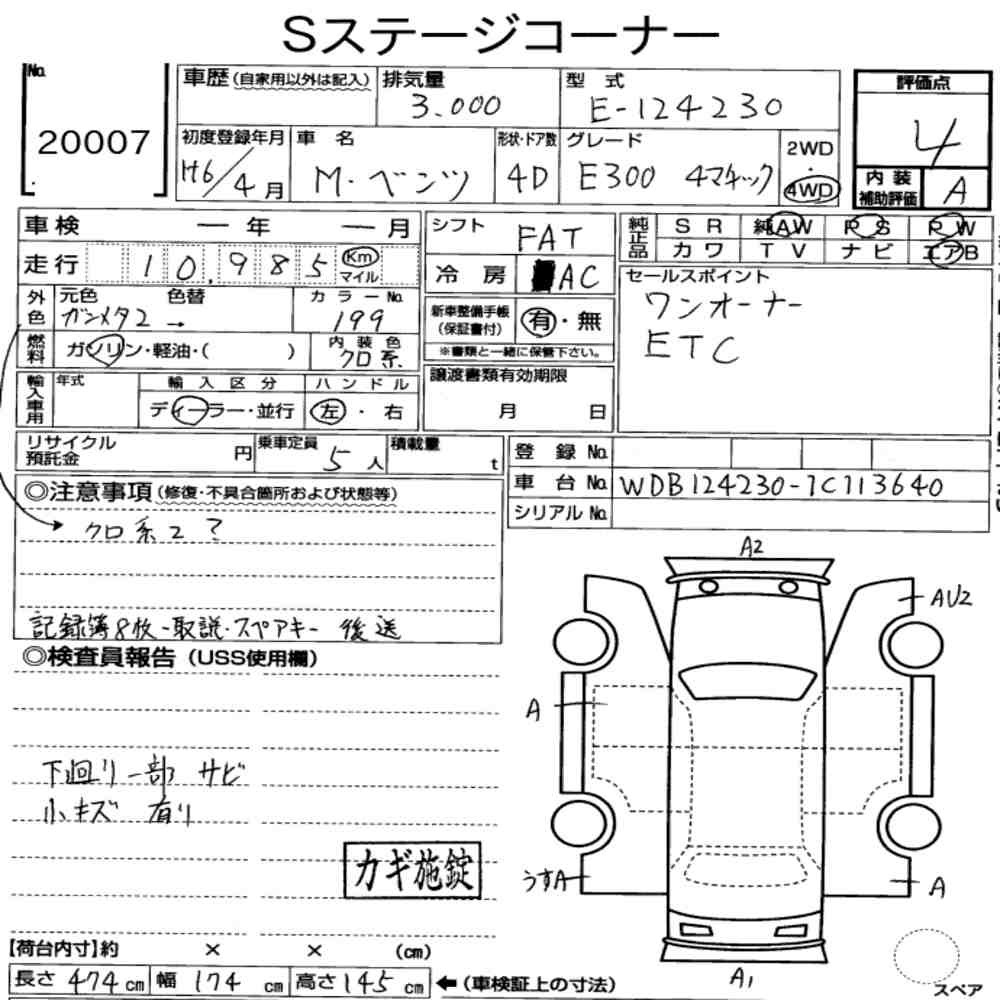 Sステージコーナー
No.
20007
車歴(自家用以外は記入)
排気量
3.000
型式
E-124230
評価点
4
初度登録年月
H6/4月
車名
M・ベンツ
形状・ドア数
4D
グレード
E300 4マチック
2WD
・
4WD
内装
補助評価
A
車検 ー年 ー月
走行 10,985 Km
マイル
シフト
FAT
冷房 AC
純正品
SR 純AW PS PW
カワ TV ナビ エアB
外色
元色 色替
ガンメタ2 →
カラーNo.
199
新車整備手帳
(保証書付)
有・無
※書類と一緒に保管下さい。
セールスポイント
ワンオーナー
ETC
燃料
ガソリン・軽油・( )
内装色
クロ系
輸入車用
年式
輸入区分
ディーラー・並行
ハンドル
左・右
譲渡書類有効期限
月 日
リサイクル
預託金
円
乗車定員
5人
積載量
t
登録No.
車台No. WDB124230-1C113640
シリアルNo.
◎注意事項(修復・不具合箇所および状態等)
クロ系2?
記録簿8枚-取説・スペアキー 後送
◎検査員報告(USS使用欄)
下回り一部 サビ
小キズ 有り
カギ施錠
A2
AU2
A
うすA
A
A1
スペア
【荷台内寸】約 × × (cm)
長さ 474cm 幅 174cm 高さ 145cm ←(車検証上の寸法)